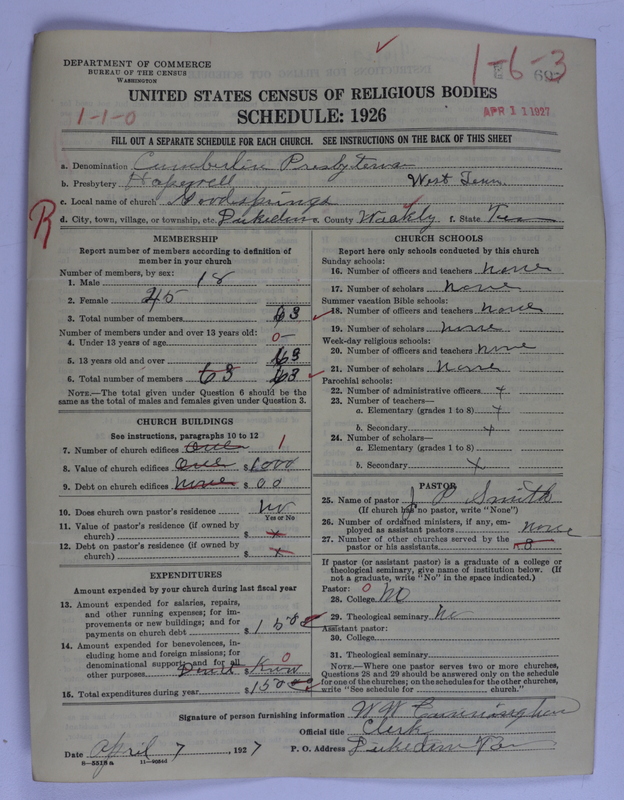 DEPARTMENT OF COMMERCE
BUREAU OF THE CENSUS
WASHINGTON
1-6-3
UNITED STATES CENSUS OF RELIGIOUS BODIES
SCHEDULE: 1926
APR 11 1927
1-1-0
FILL OUT A SEPARATE SCHEDULE FOR EACH CHURCH. SEE INSTRUCTIONS ON THE BACK OF THIS SHEET
a. Denomination Cumberlin Presbyteran
b. Presbytery Hopewell West Tenn.
c. Local name of church Goodsprings
d. City, town, village, or township, etc. Dukedom e. County Weakly f. State Ten
R
MEMBERSHIP
Report number of members according to definition of
member in your church
Number of members, by sex:
1. Male 18
2. Female 45
3. Total number of members 63
Number of members under and over 13 years old:
4. Under 13 years of age 0
5. 13 years old and over 63
6. Total number of members 63 63
NOTE.—The total given under Question 6 should be the
same as the total of males and females given under Question 3.
CHURCH BUILDINGS
See instructions, paragraphs 10 to 12
7. Number of church edifices 1
8. Value of church edifices $ 1000
9. Debt on church edifices none $ 00
10. Does church own pastor's residence No
Yes or No
11. Value of pastor's residence (if owned by
church) $ x
12. Debt on pastor's residence (if owned by
church) $ x
EXPENDITURES
Amount expended by your church during last fiscal year
13. Amount expended for salaries, repairs,
and other running expenses; for im-
provements or new buildings; and for
payments on church debt $ 150
14. Amount expended for benevolences, in-
cluding home and foreign missions; for
denominational support; and for all
other purposes Dont Know $ 0
15. Total expenditures during year $ 150
CHURCH SCHOOLS
Report here only schools conducted by this church
Sunday schools:
16. Number of officers and teachers none
17. Number of scholars none
Summer vacation Bible schools:
18. Number of officers and teachers none
19. Number of scholars none
Week-day religious schools:
20. Number of officers and teachers none
21. Number of scholars none
Parochial schools:
22. Number of administrative officers x
23. Number of teachers—
a. Elementary (grades 1 to 8) x
b. Secondary x
24. Number of scholars—
a. Elementary (grades 1 to 8)
b. Secondary x
PASTOR
25. Name of pastor J P Smith
(If church has no pastor, write "None")
26. Number of ordained ministers, if any, em-
ployed as assistant pastors none
27. Number of other churches served by the
pastor or his assistants 3
If pastor (or assistant pastor) is a graduate of a college or
theological seminary, give name of institution below. (If
not a graduate, write "No" in the space indicated.)
Pastor: 0
28. College No
29. Theological seminary No
Assistant pastor:
30. College
31. Theological seminary
NOTE.—Where one pastor serves two or more churches,
Questions 28 and 29 should be answered only on the schedule
for one of the churches; on the schedules for the other churches,
write "See schedule for church."
Signature of person furnishing information W W Cunningham
Official title Clerk
Date April 7, 1927 P. O. Address Dukedom Ten
8-5513a 11-9054d